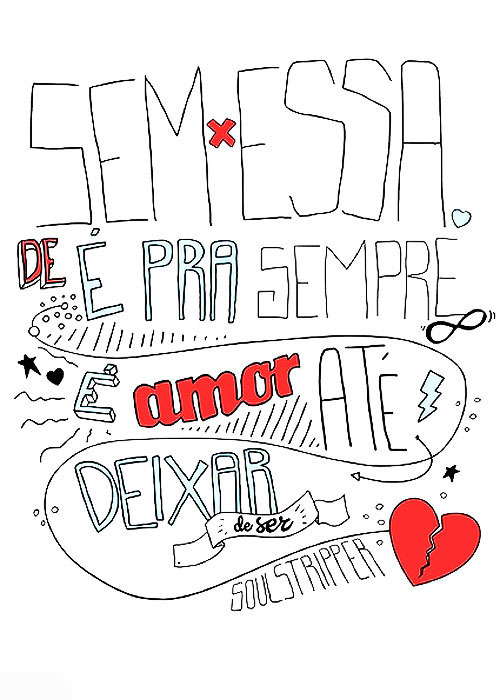 SEM ESSA
DE É PRA SEMPRE
É amor ATÉ
DEIXAR
de ser
SOULSTRIPPER